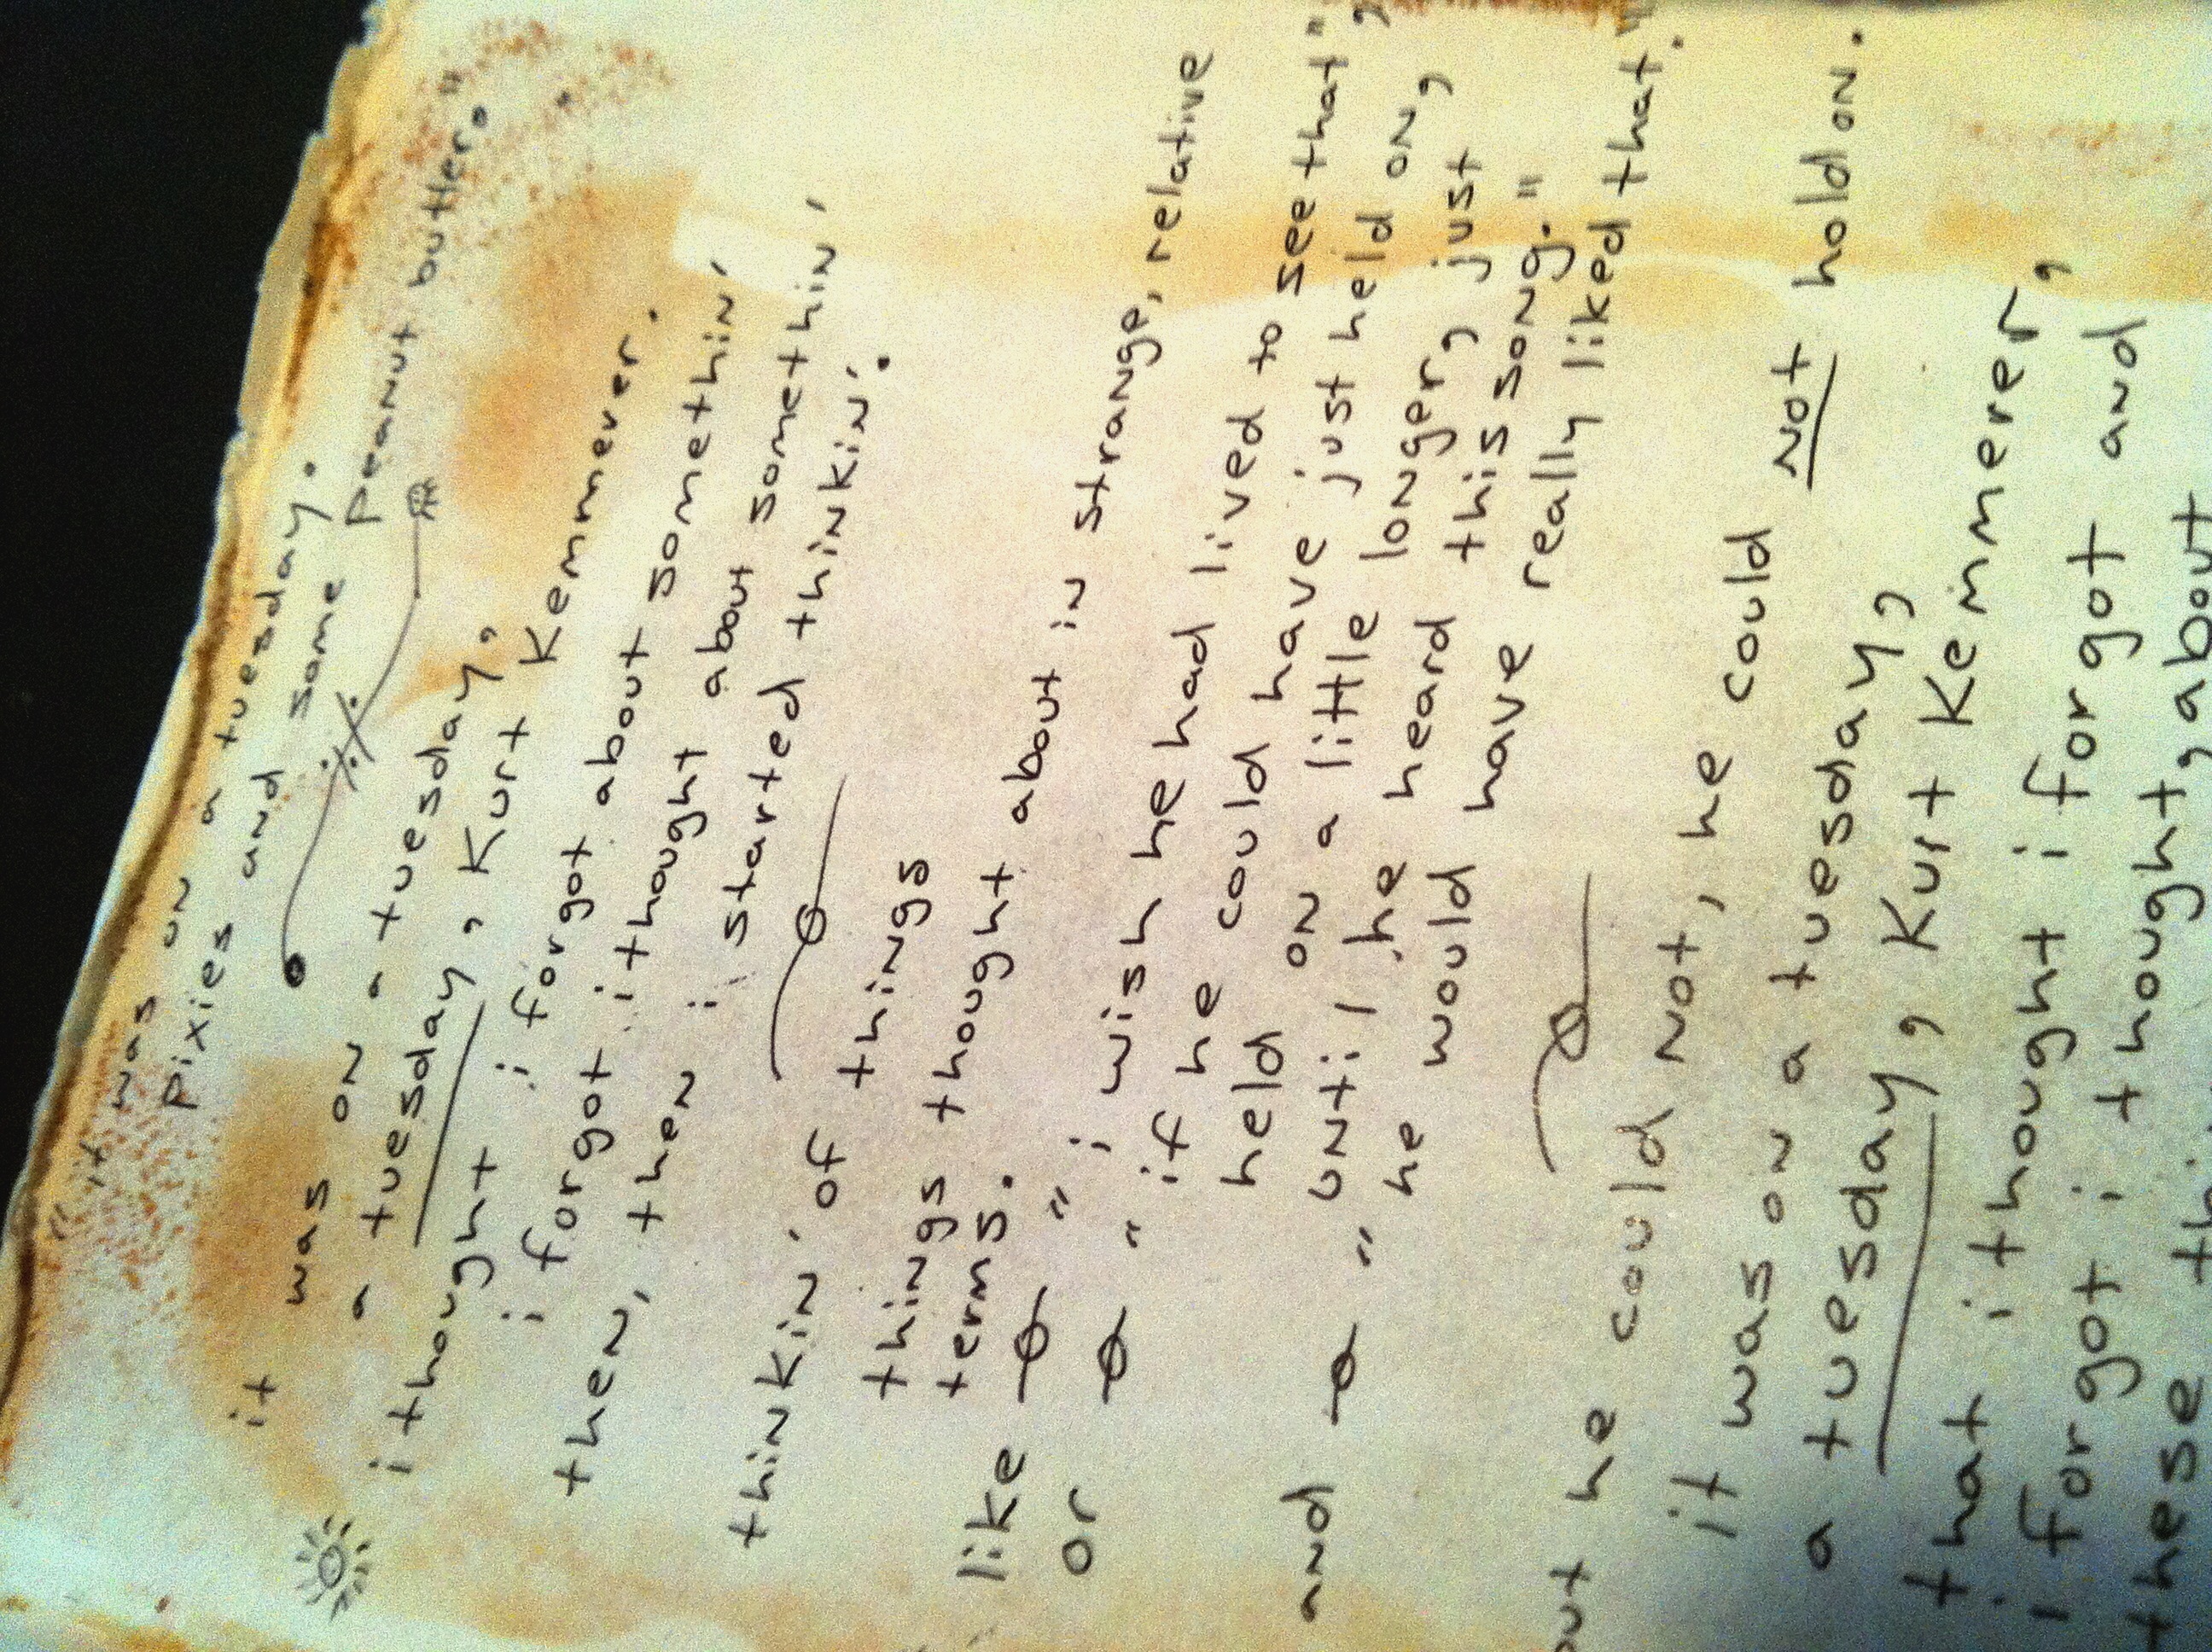 "it was on a tuesday.
pixies and some peanut butter."
it was on a tuesday,
a tuesday, Kurt Kemmerer.
i thought i forgot about somethin',
i forgot i thought about somethin',
then, then i started thinkin'.
thinkin' of things
things thought about in strange, relative
terms.
like ø "i wish he had lived to see that",
or ø "if he could have just held on,
held on a little longer, just
until he heard this song."
and ø "he would have really liked that."
but he could not, he could not hold on.
it was on a tuesday,
a tuesday, Kurt Kemmerer,
that i thought i forgot and
i forgot i thought, about
these